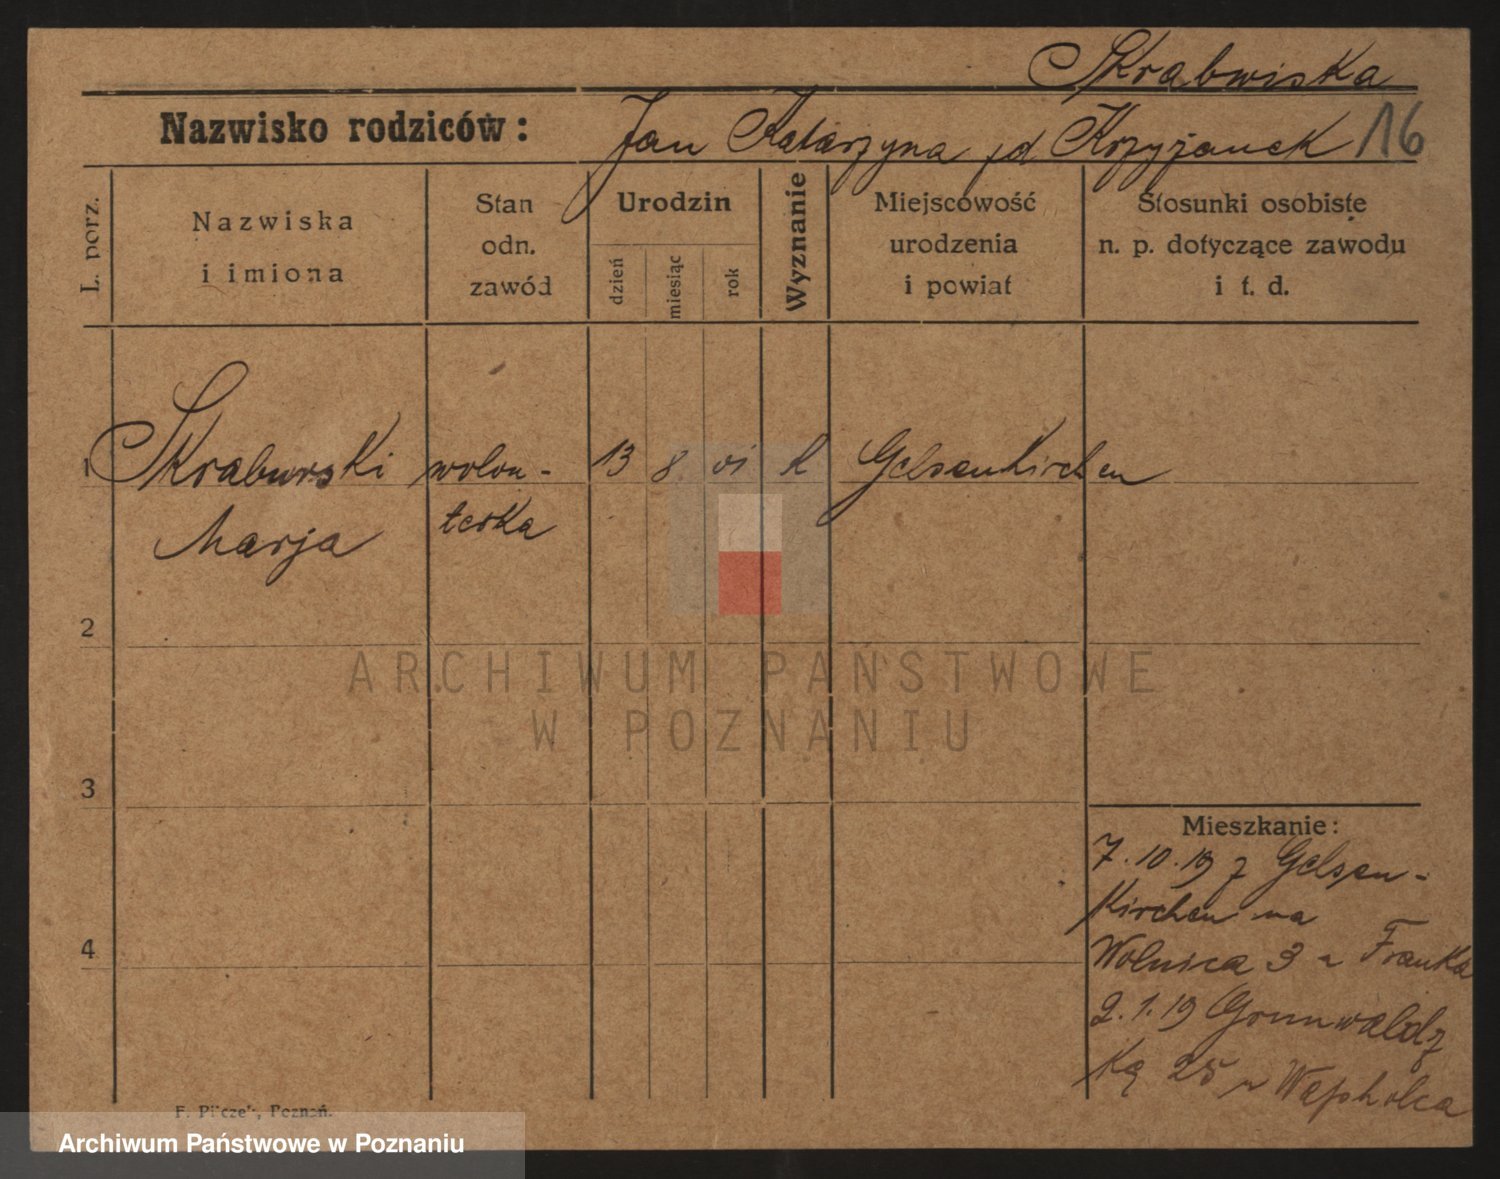 Skrabwiska
Nazwisko rodziców: Jan Katarzyna jd Krzyżanek 16
L. porz.
Nazwiska
i imiona
Stan
odn.
zawód
Urodzin
dzień
miesiąc
rok
Wyznanie
Miejscowość
urodzenia
i powiat
Stosunki osobiste
n. p. dotyczące zawodu
i t. d.
1 Skraburski wolon- 13 8 01 k Gelsenkirchen
Marja terka
2
3
4
Mieszkanie:
7.10.19 z Gelsen-
kirchen na
Wolnica 3 u Franka
2.1.19 Grunwaldz
ką 25 u
F. Pilczek, Poznań.
ARCHIWUM PAŃSTWOWE
W POZNANIU
Archiwum Państwowe w Poznaniu